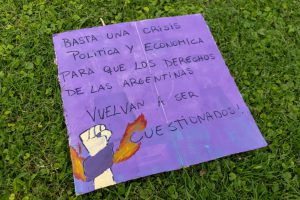 BASTA UNA CRISIS
POLITICA Y ECONOMICA
PARA QUE LOS DERECHOS
DE LAS ARGENTINAS
VUELVAN A SER
CUESTIONADOS!